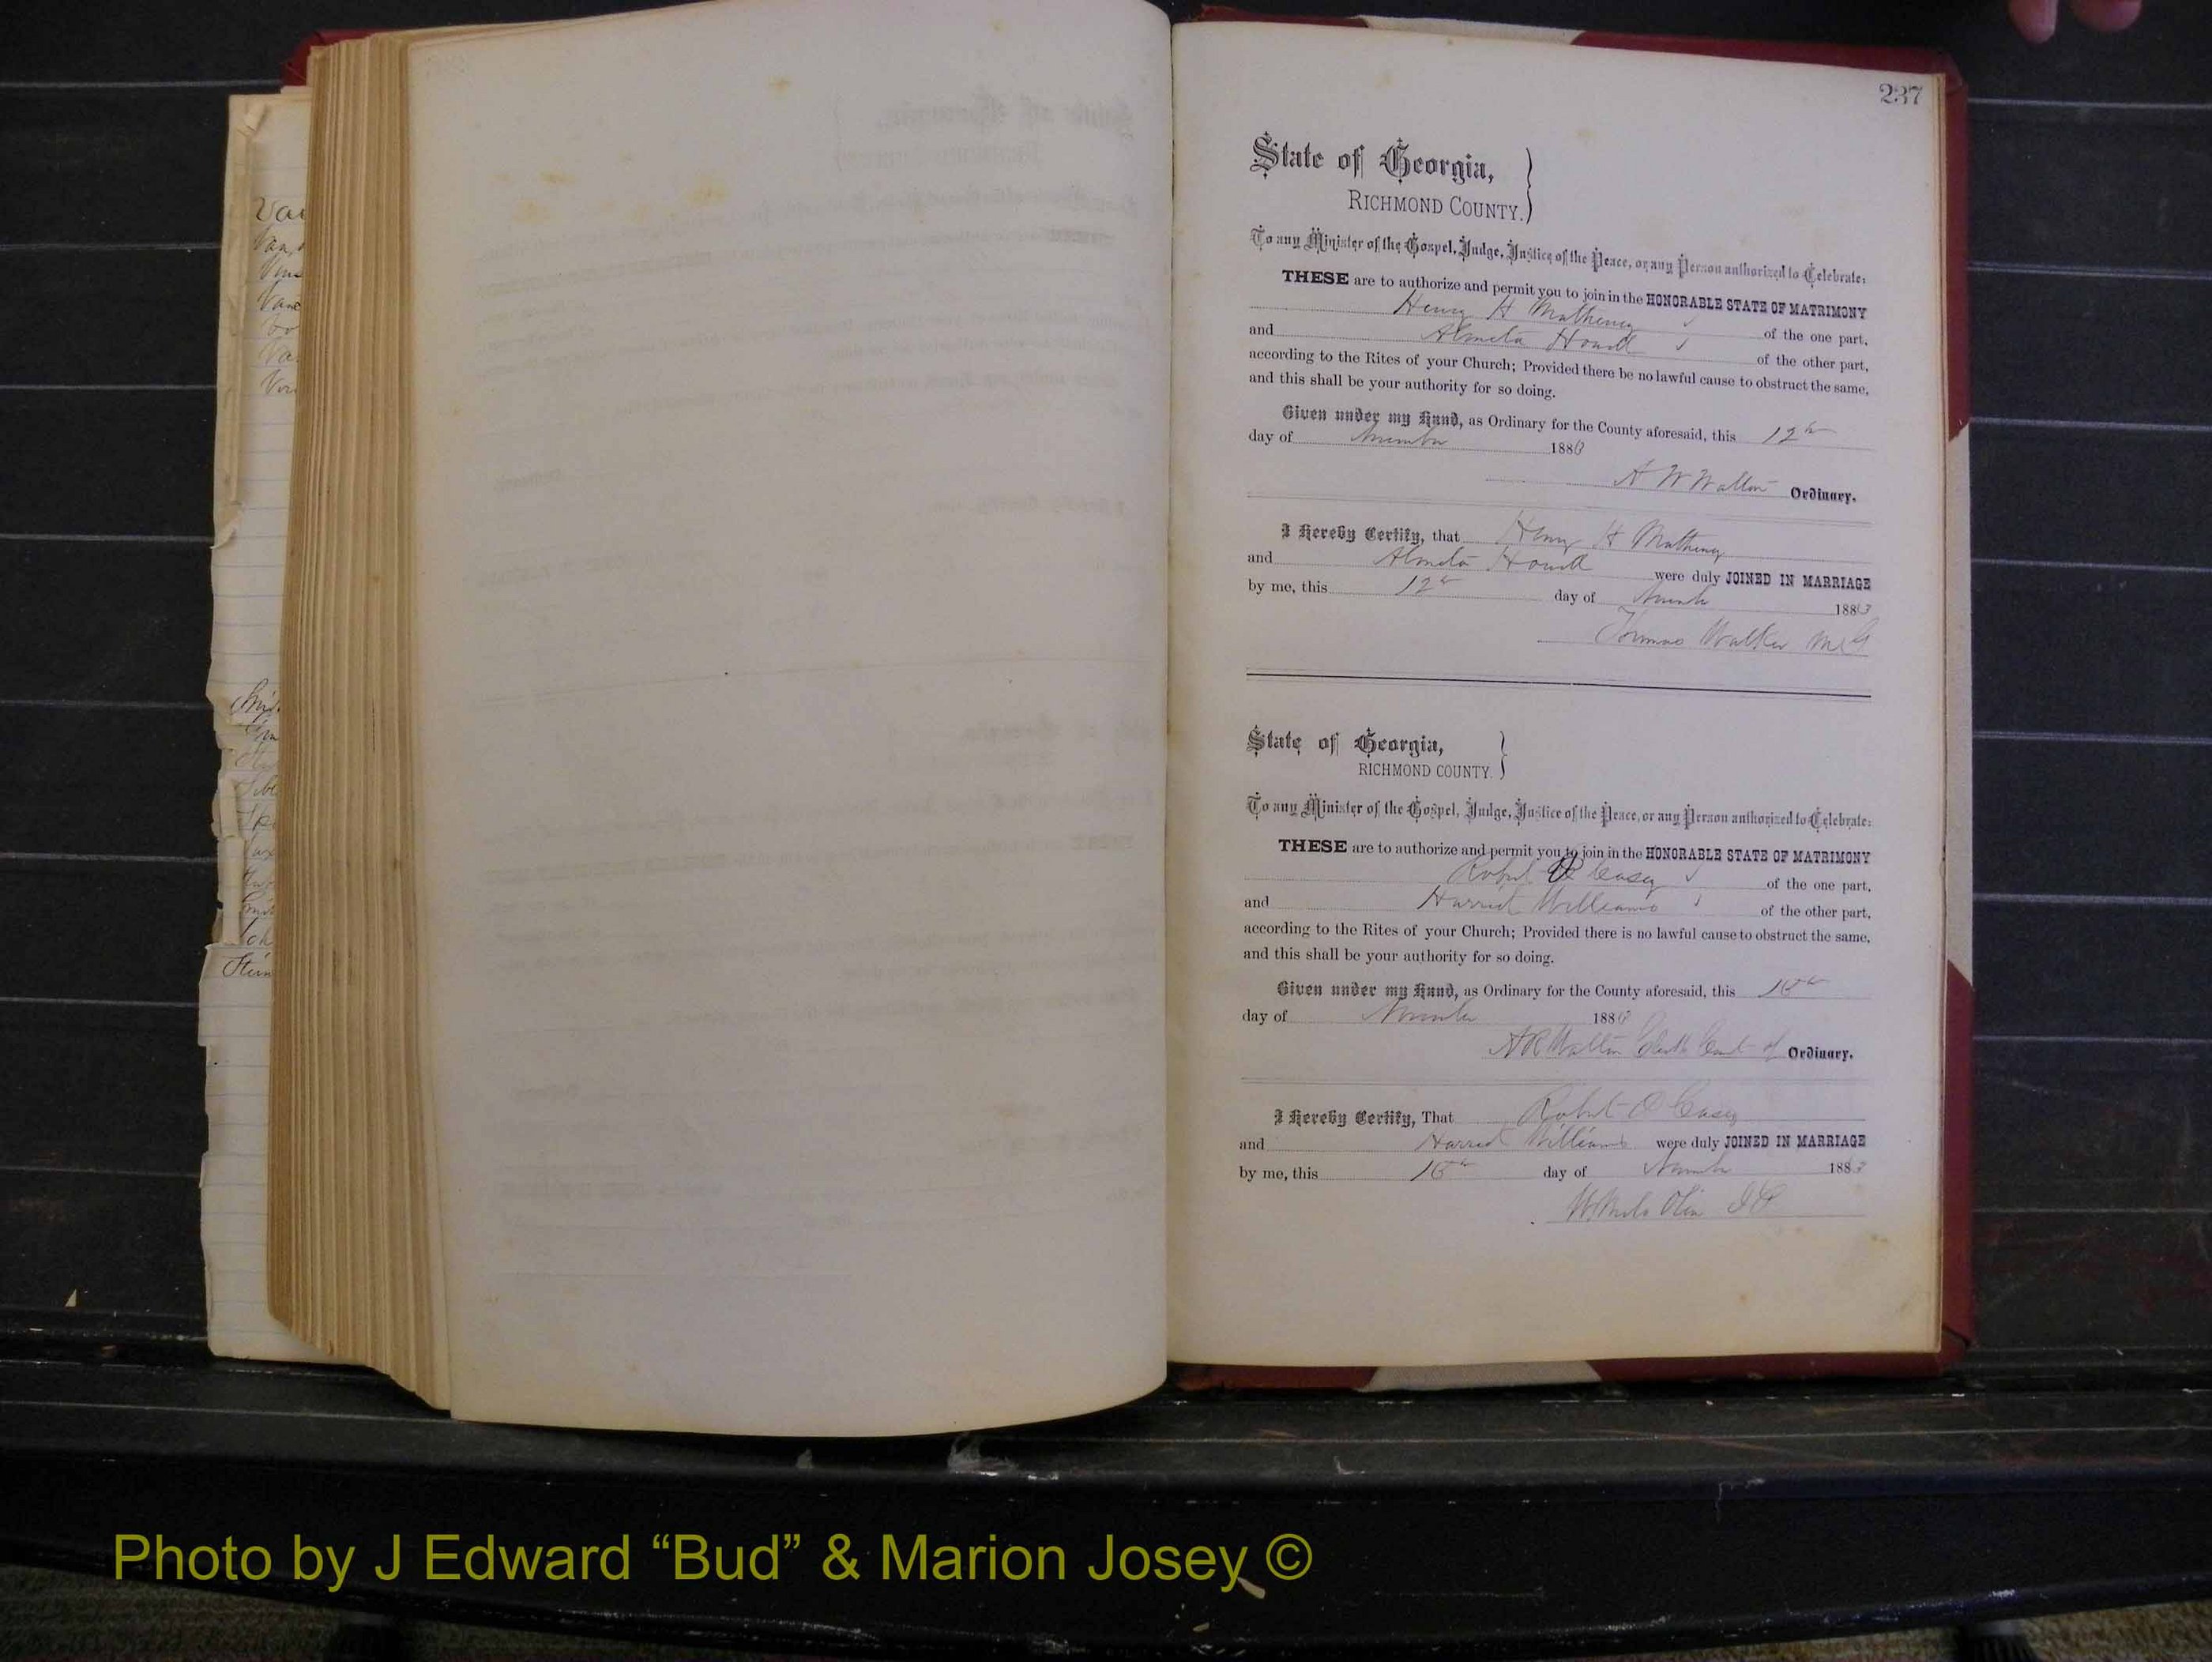 237
State of Georgia,
RICHMOND COUNTY.
To any Minister of the Gospel, Judge, Justice of the Peace, or any Person authorized to Celebrate:
THESE are to authorize and permit you to join in the HONORABLE STATE OF MATRIMONY
Henry H Matheney of the one part,
and Almeta Howell of the other part,
according to the Rites of your Church; Provided there be no lawful cause to obstruct the same,
and this shall be your authority for so doing.
Given under my Hand, as Ordinary for the County aforesaid, this 12th
day of November 1883
A W Walton Ordinary.
I Hereby Certify, that Henry H Matheney
and Almeta Howell were duly JOINED IN MARRIAGE
by me, this 12th day of November 1883
Thomas Walker M G
State of Georgia,
RICHMOND COUNTY.
To any Minister of the Gospel, Judge, Justice of the Peace, or any Person authorized to Celebrate:
THESE are to authorize and permit you to join in the HONORABLE STATE OF MATRIMONY
Robert O Casey of the one part,
and Harriet Williams of the other part,
according to the Rites of your Church; Provided there is no lawful cause to obstruct the same,
and this shall be your authority for so doing.
Given under my Hand, as Ordinary for the County aforesaid, this
day of November 1883
A R Walton Clerk Court of Ordinary.
I Hereby Certify, That Robert O Casey
and Harriet Williams were duly JOINED IN MARRIAGE
by me, this day of November 1883
Olin J P
Photo by J Edward “Bud” & Marion Josey ©